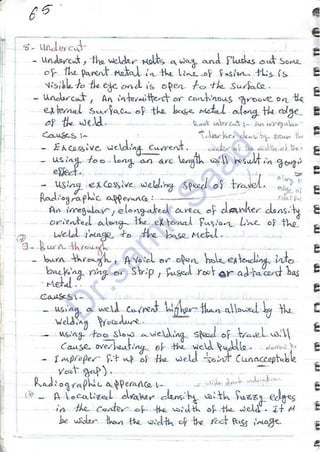 65
8- Undercut
- Undercut, the welder Melts a way and Flushes out Some
of the parent Metal in the line of Fusion. this is
Visible to the eye and is open to the surface.
- Undercut, An intermittent or continous groove on the
external Surface of the base metal along the edge
of the weld.
Root undercut :- An irregular
Causes :-
- Excessive welding current.
- using too long an arc length will result in
effect.
- using excessive welding speed of travel.
along
edge of
Radiographic apperance :-
An irregular, elongated area of draker density
oriented along the external Fusion line of the
weld image to the base metal.
9- Burn through
- burn through, A Void or open hole extending into
backing ring or Strip, fused root or adtacent bas
Metal.
Causes :-
- using a weld current higher than allowed by the
Welding Procedure.
- using too slow a welding speed of travel will
Cause overheating of the weld Puddle.
- Improper fit up of the weld toint (unacceptable
root gap).
Radiographic apperance :-
- A Localized draker density with fuzzy edges
in the Center of the width of the weld. It M
be wider than the width of the root Pass image